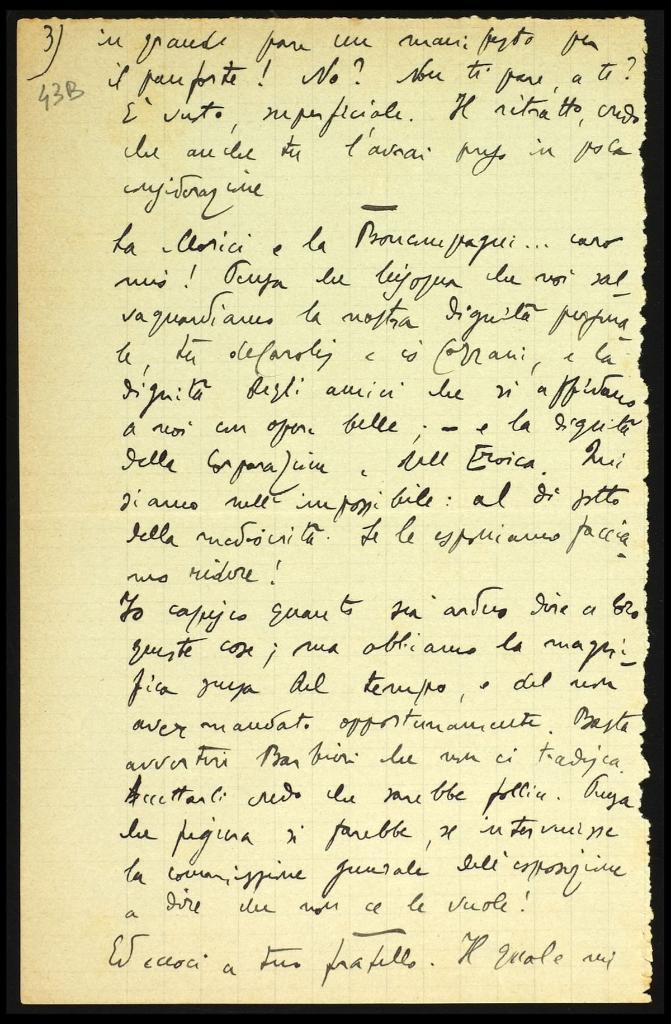 3) in grande pare un manifesto per
43B
il panforte! No? Non ti pare, a te?
È vuoto, superficiale. Il ritratto, credo
che anche tu l'avrai preso in poca
considerazione
La Clerici e la Boncompagni... caro
mio! Pensa che bisogna che noi sal-
vaguardiamo la nostra dignità persona
le, tu deCarolis e io Cozzani, e la
dignità degli amici che si affidano
a noi con opere belle; – e la dignità
della Corporazione e dell'Eroica. Qui
siamo nell'impossibile: al di sotto
della mediocrità. Se le esponiamo faccia-
mo ridere!
Io capisco quanto sia arduo dire a loro
queste cose; ma abbiamo la magni-
fica scusa del tempo, e del non
aver mandato opportunamente. Basta
avvertire Barbieri che non ci tradisca.
Accettarli credo che sarebbe follia. Pensa
che figura si farebbe, se intervenisse
la commissione generale dell'esposizione
a dire che non ce le vuole!
Ed eccoci a tuo fratello. Il quale mi